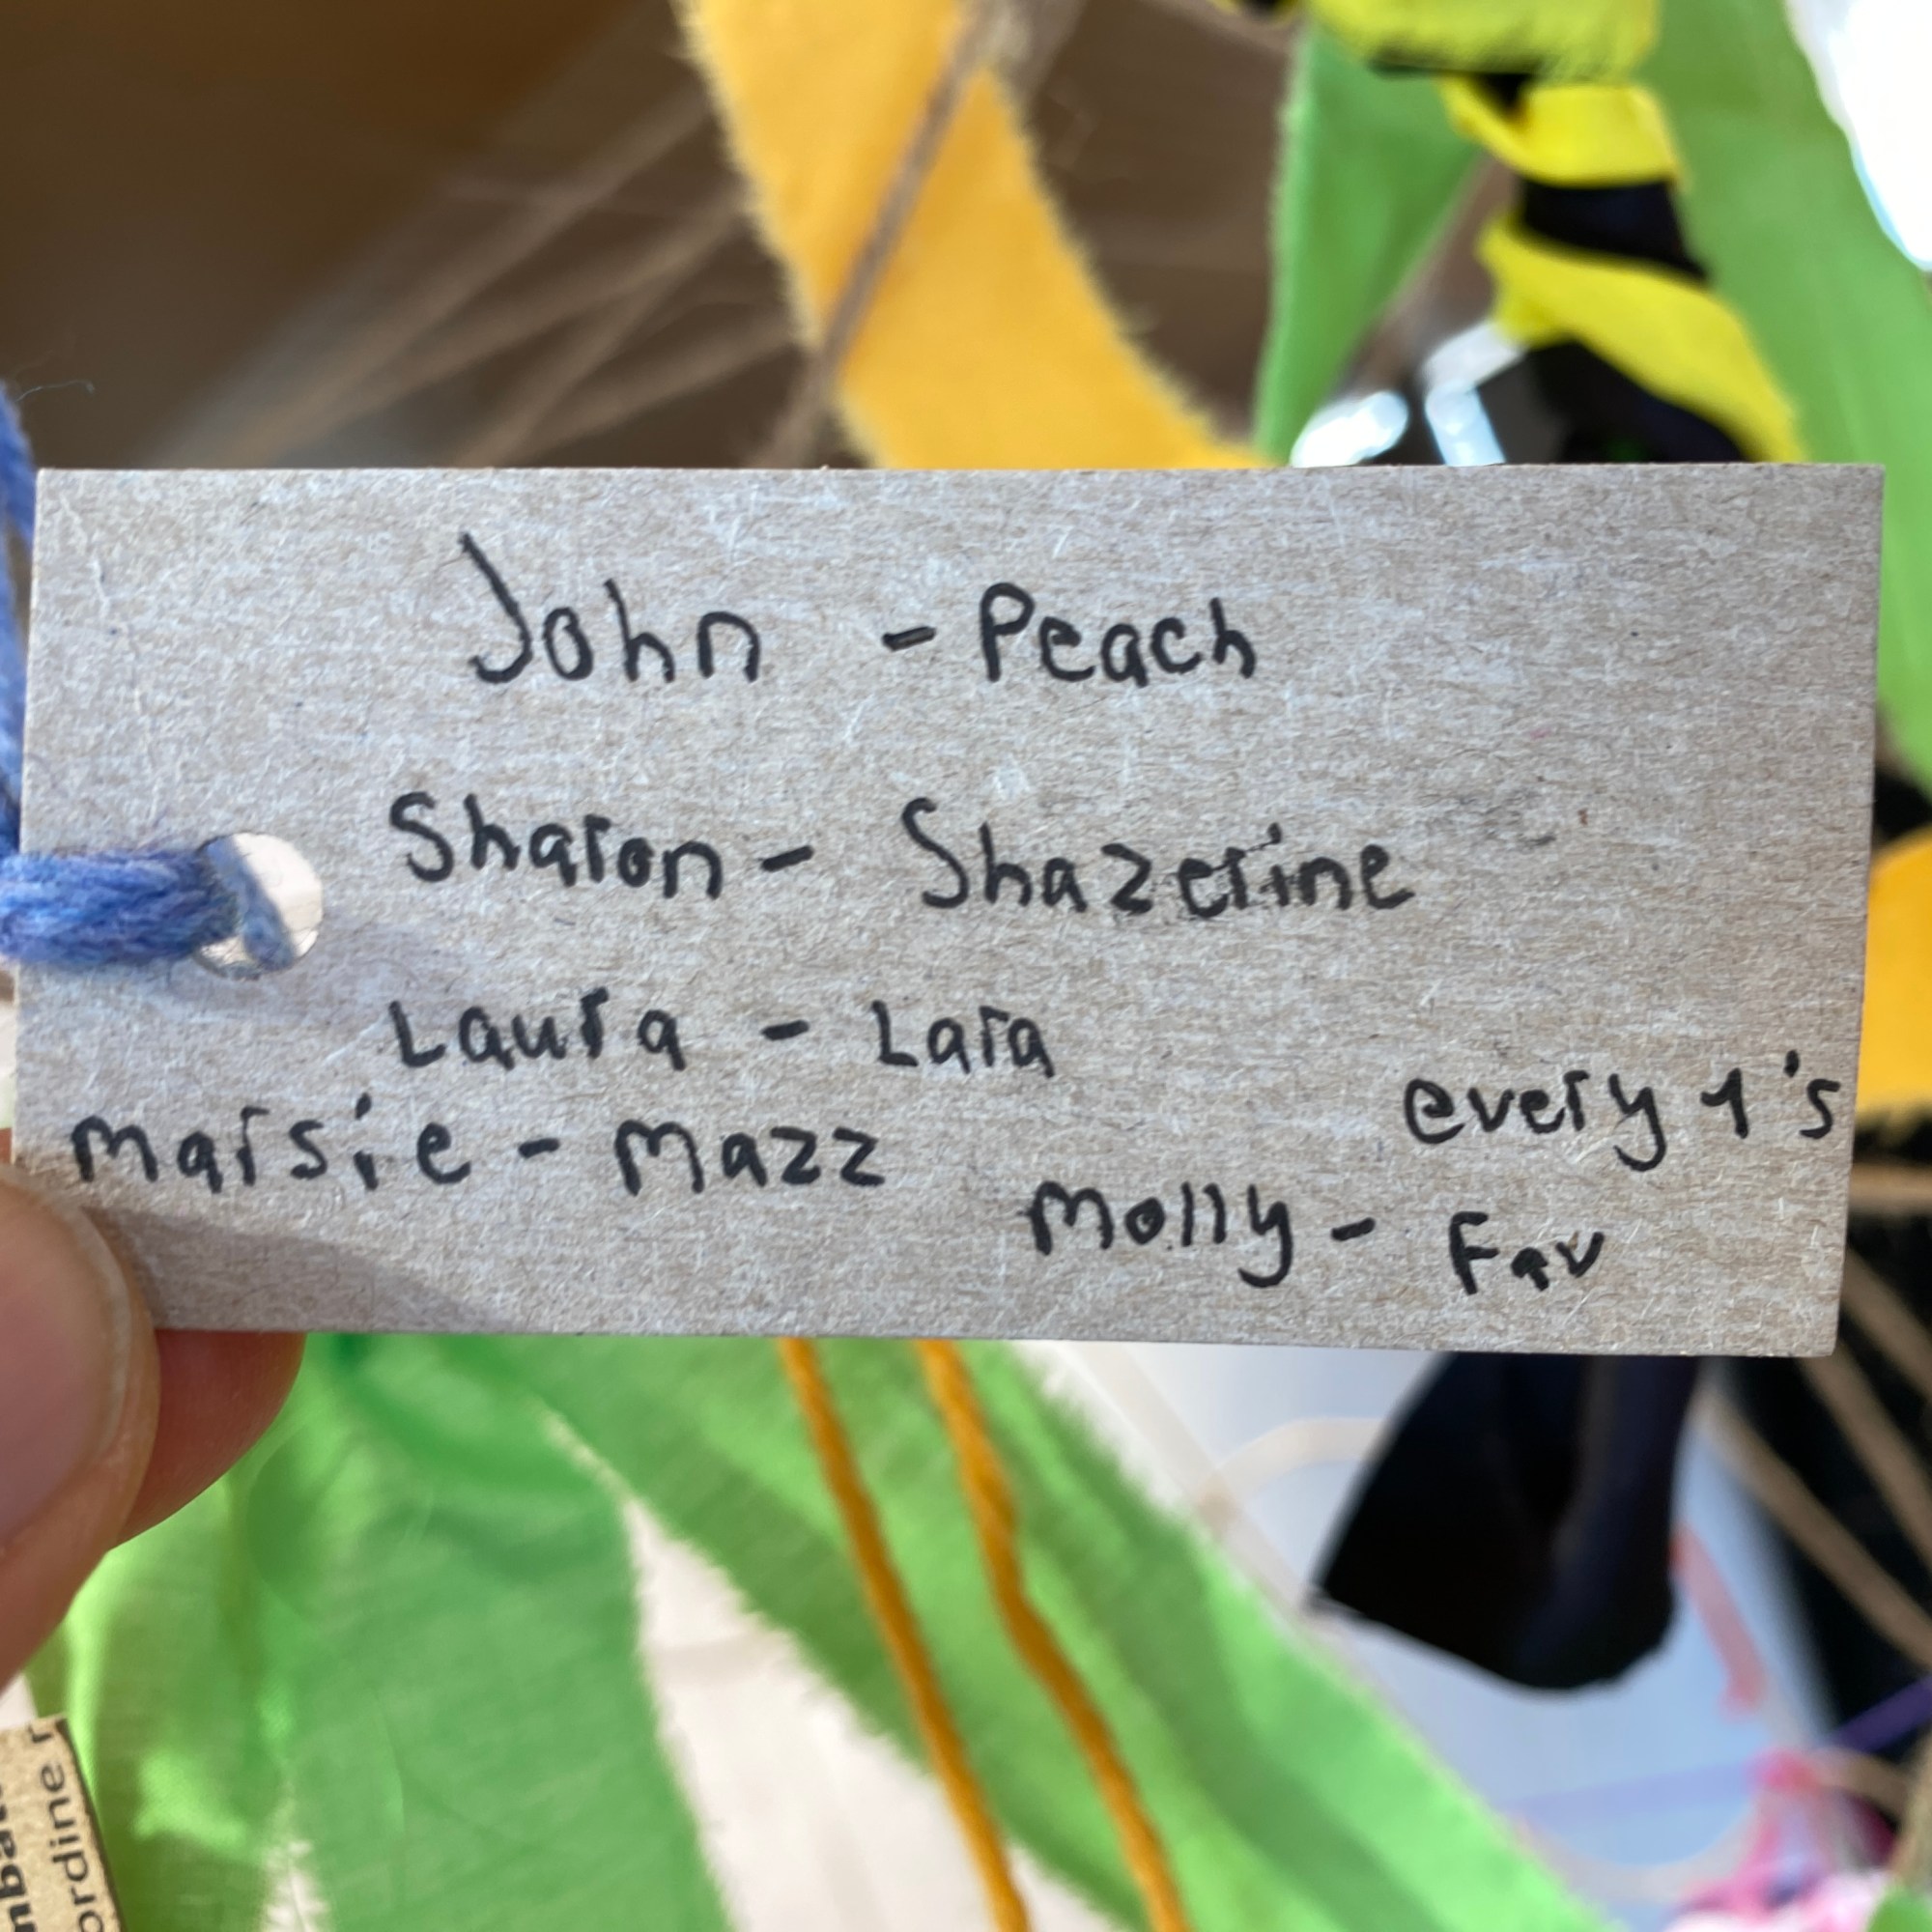 John - Peach
Sharon - Shazerine
Laura - Lara
Marsie - Mazz
every 1's
Molly - Fav
ordine